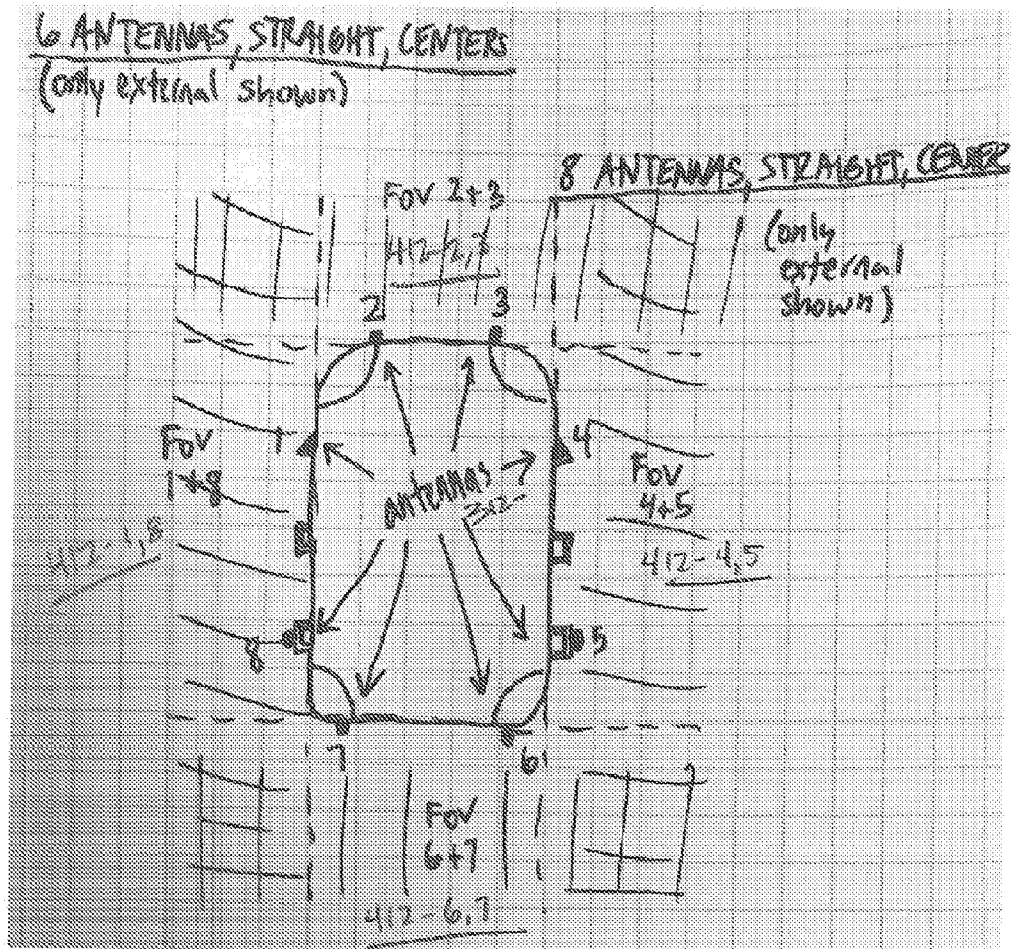 6 ANTENNAS, STRAIGHT, CENTERS
(only external shown)
8 ANTENNAS, STRAIGHT, CENTER
(only
external
shown)
FOV 2+3
412-2,3
2
3
1
4
FOV
1+8
412-1,8
antennas
312-
FOV
4+5
412-4,5
8
5
7
6
FOV
6+7
412-6,7